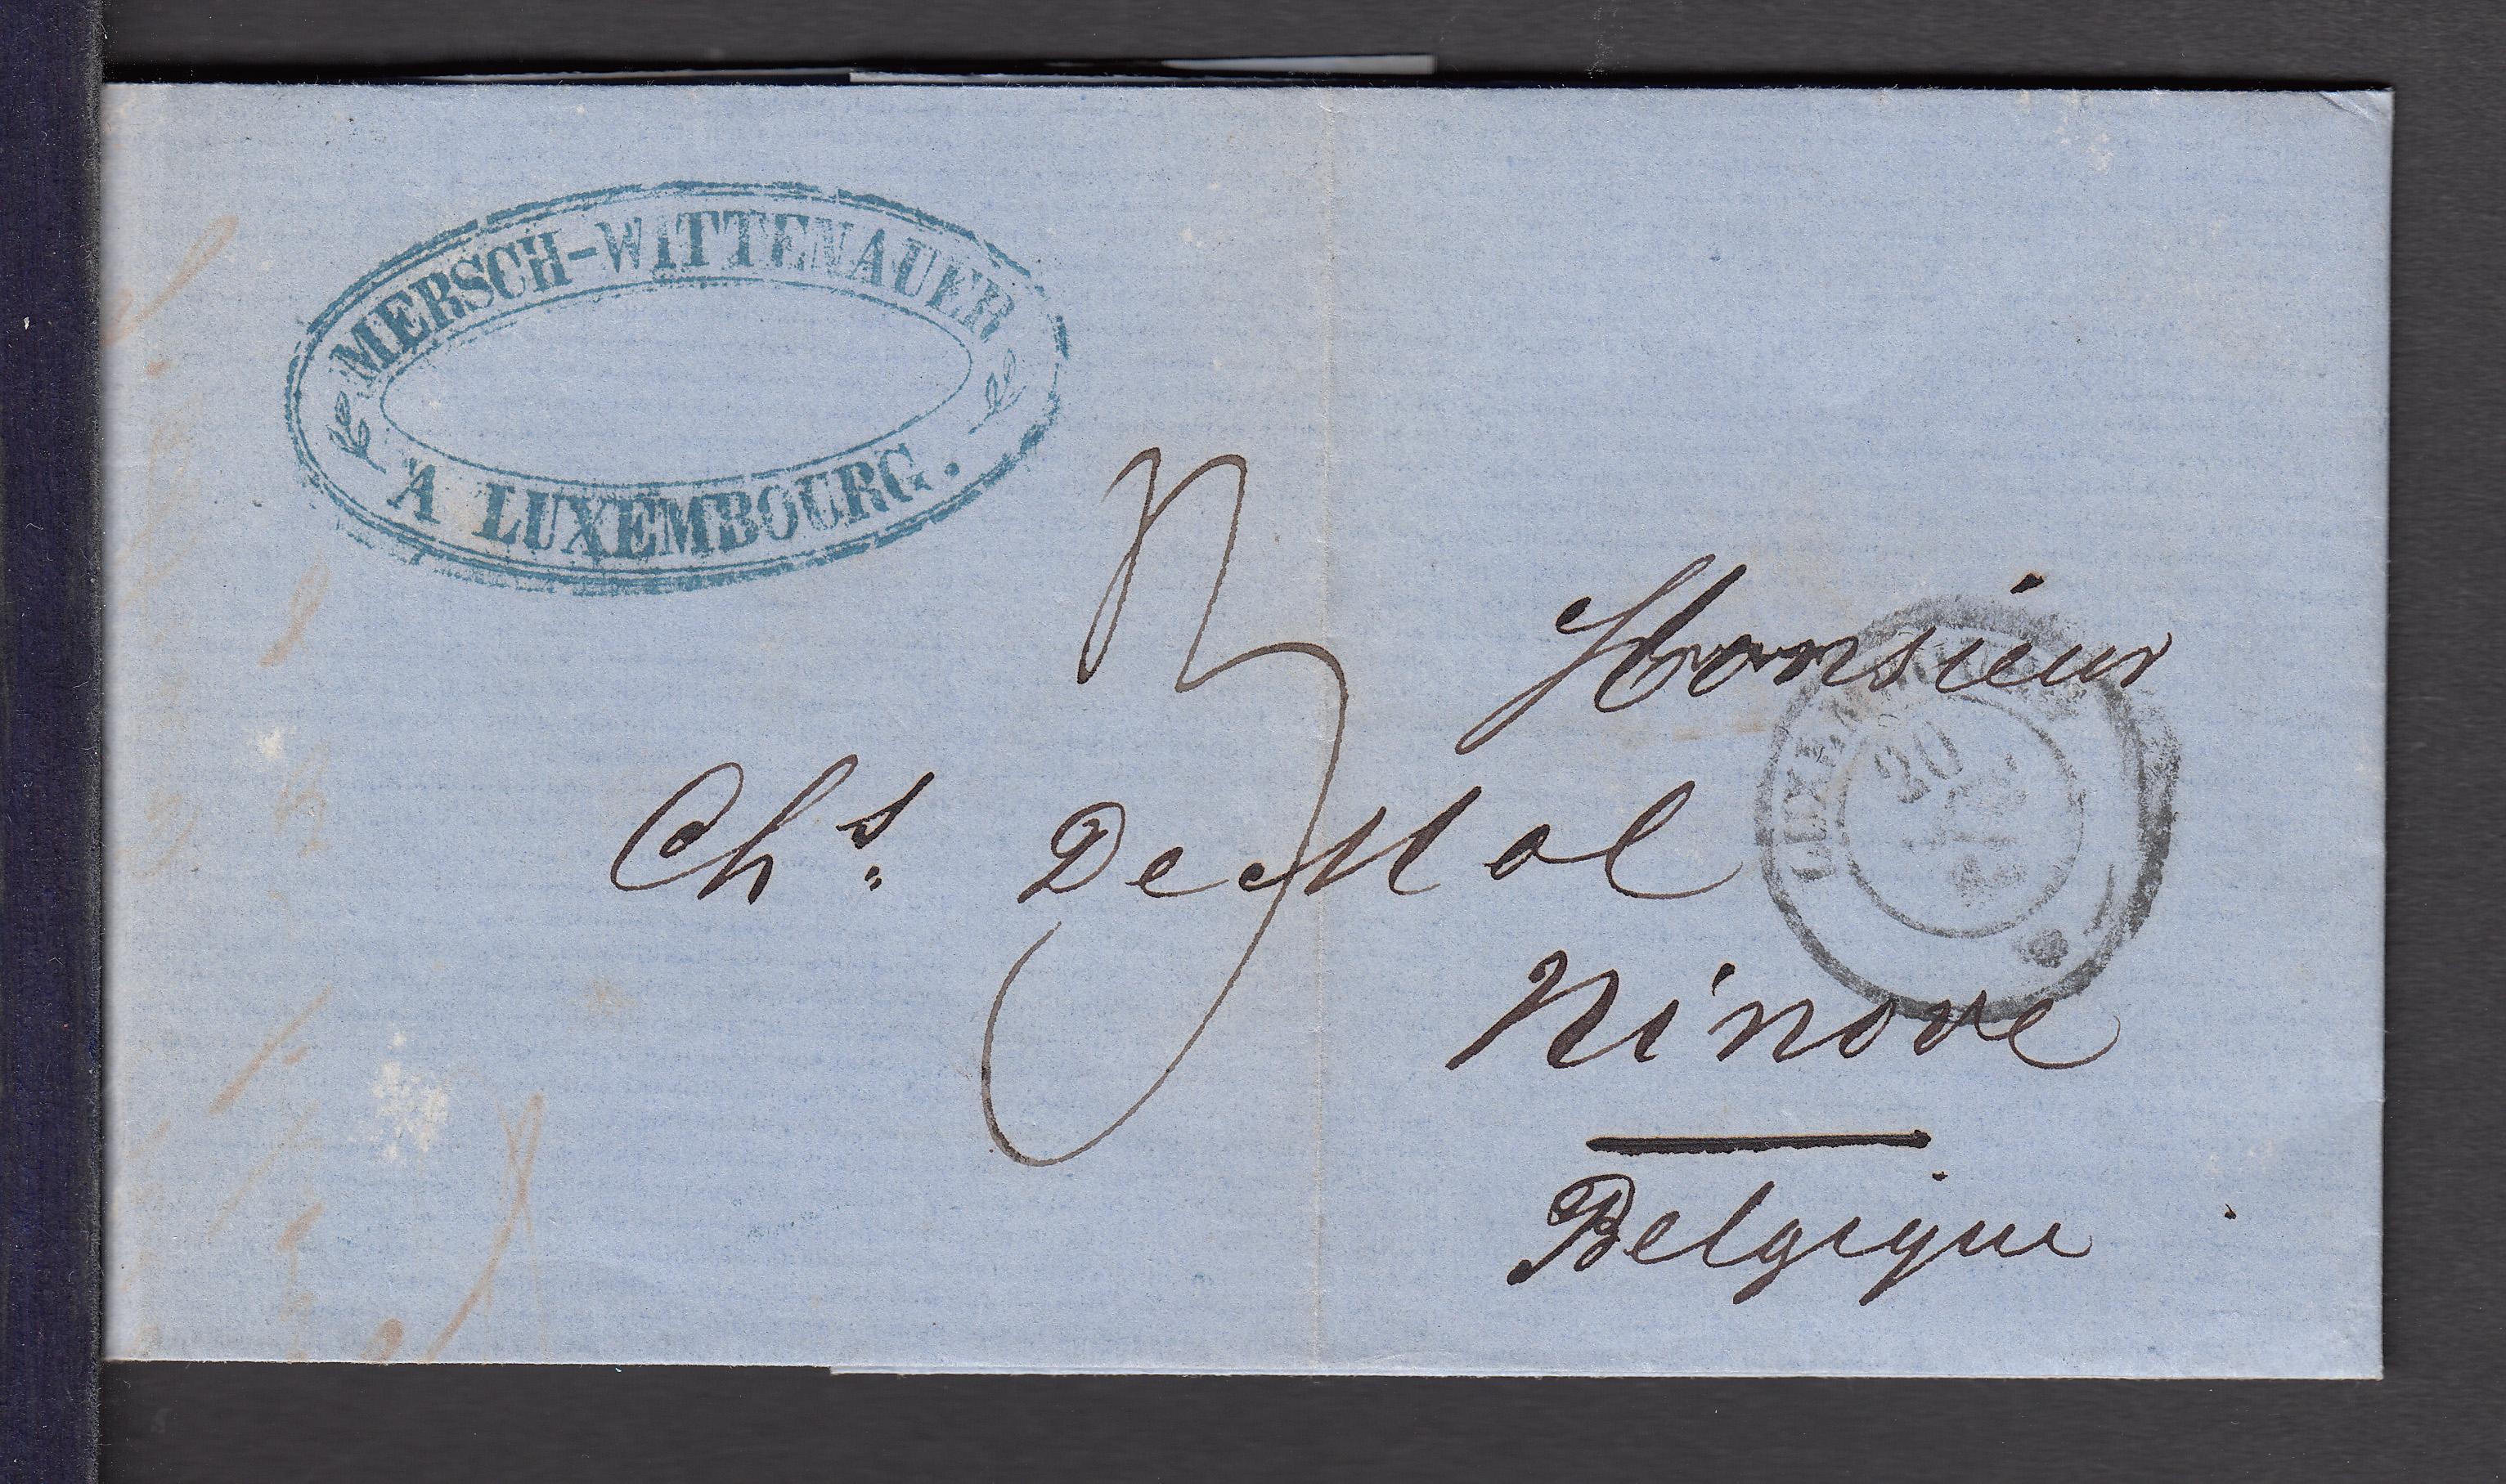 MERSCH-WITTENAUER
A LUXEMBOURG.
3
Monsieur
Chs. De Mol
Ninove
Belgique
LUXEMBOURG
20